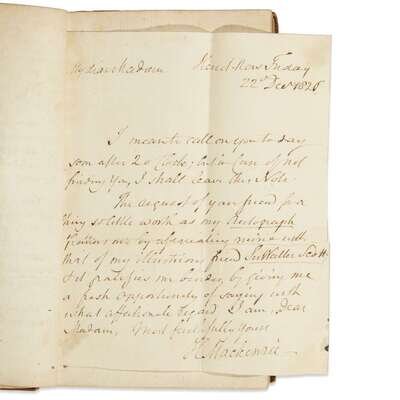 My dear Madam, Heriot Row Friday
22d Decr 1826
I meant to call on you to day
soon after 2 o Clock; but in Case of not
finding You, I shall leave this Note.
The request of your friend for a
thing so little work as my Autograph
flatters me by associating mine with
that of my illustrious friend Sir Walter Scott
& it gratifies me besides by giving me
a fresh opportunity of saying with
what affectionate regard I am, Dear
Madam, Most faithfully Yours
H. Mackenzie